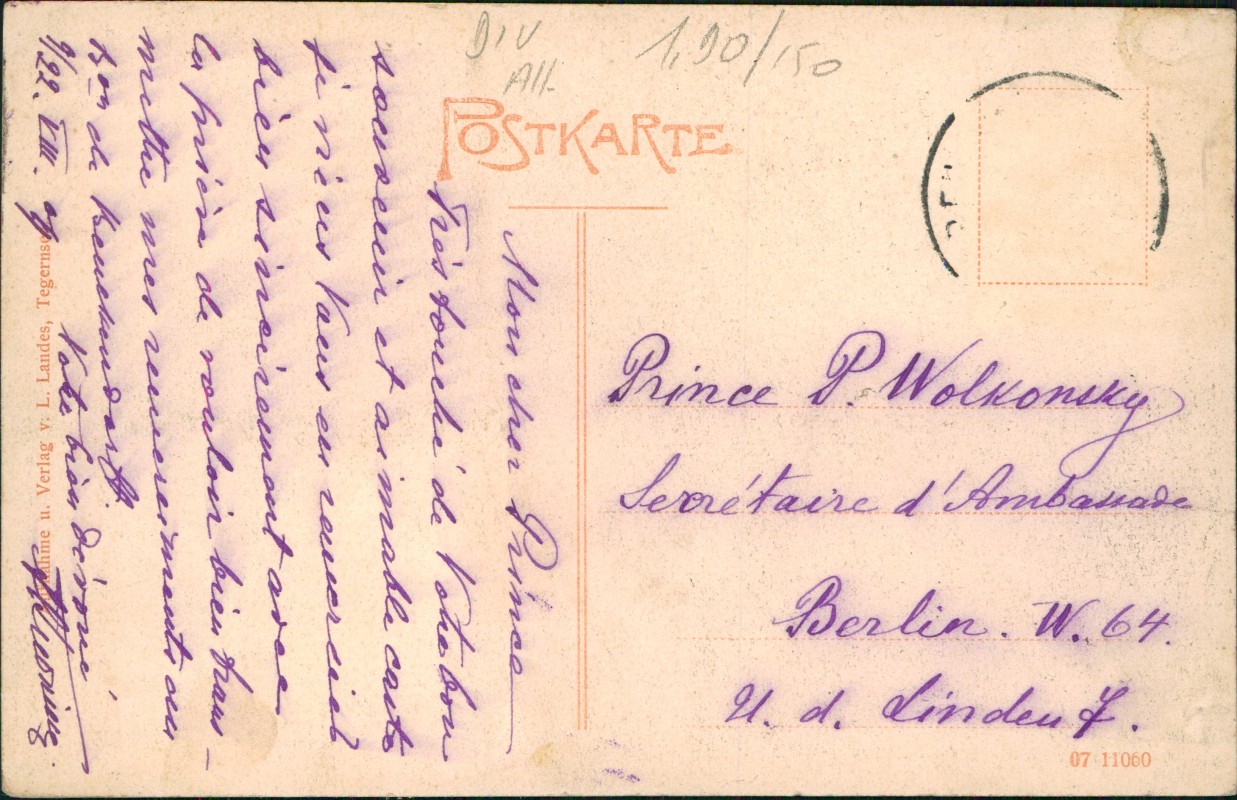 Div
All.
1,90/150
POSTKARTE
Mon cher Prince
Très touché de Votre bon
souvenir et aimable carte
je viens Vous en remercier
bien sincèrement avec
la prière de vouloir bien trans-
mettre mes remerciments au
Bon de Kenckendorff.
Votre bien dévoué
9/22. VIII.
Prince P. Wolkonsky
Secrétaire d'Ambassade
Berlin. W. 64.
U. d. Linden 7.
nahme u. Verlag v. L. Landes, Tegernse
07 11060